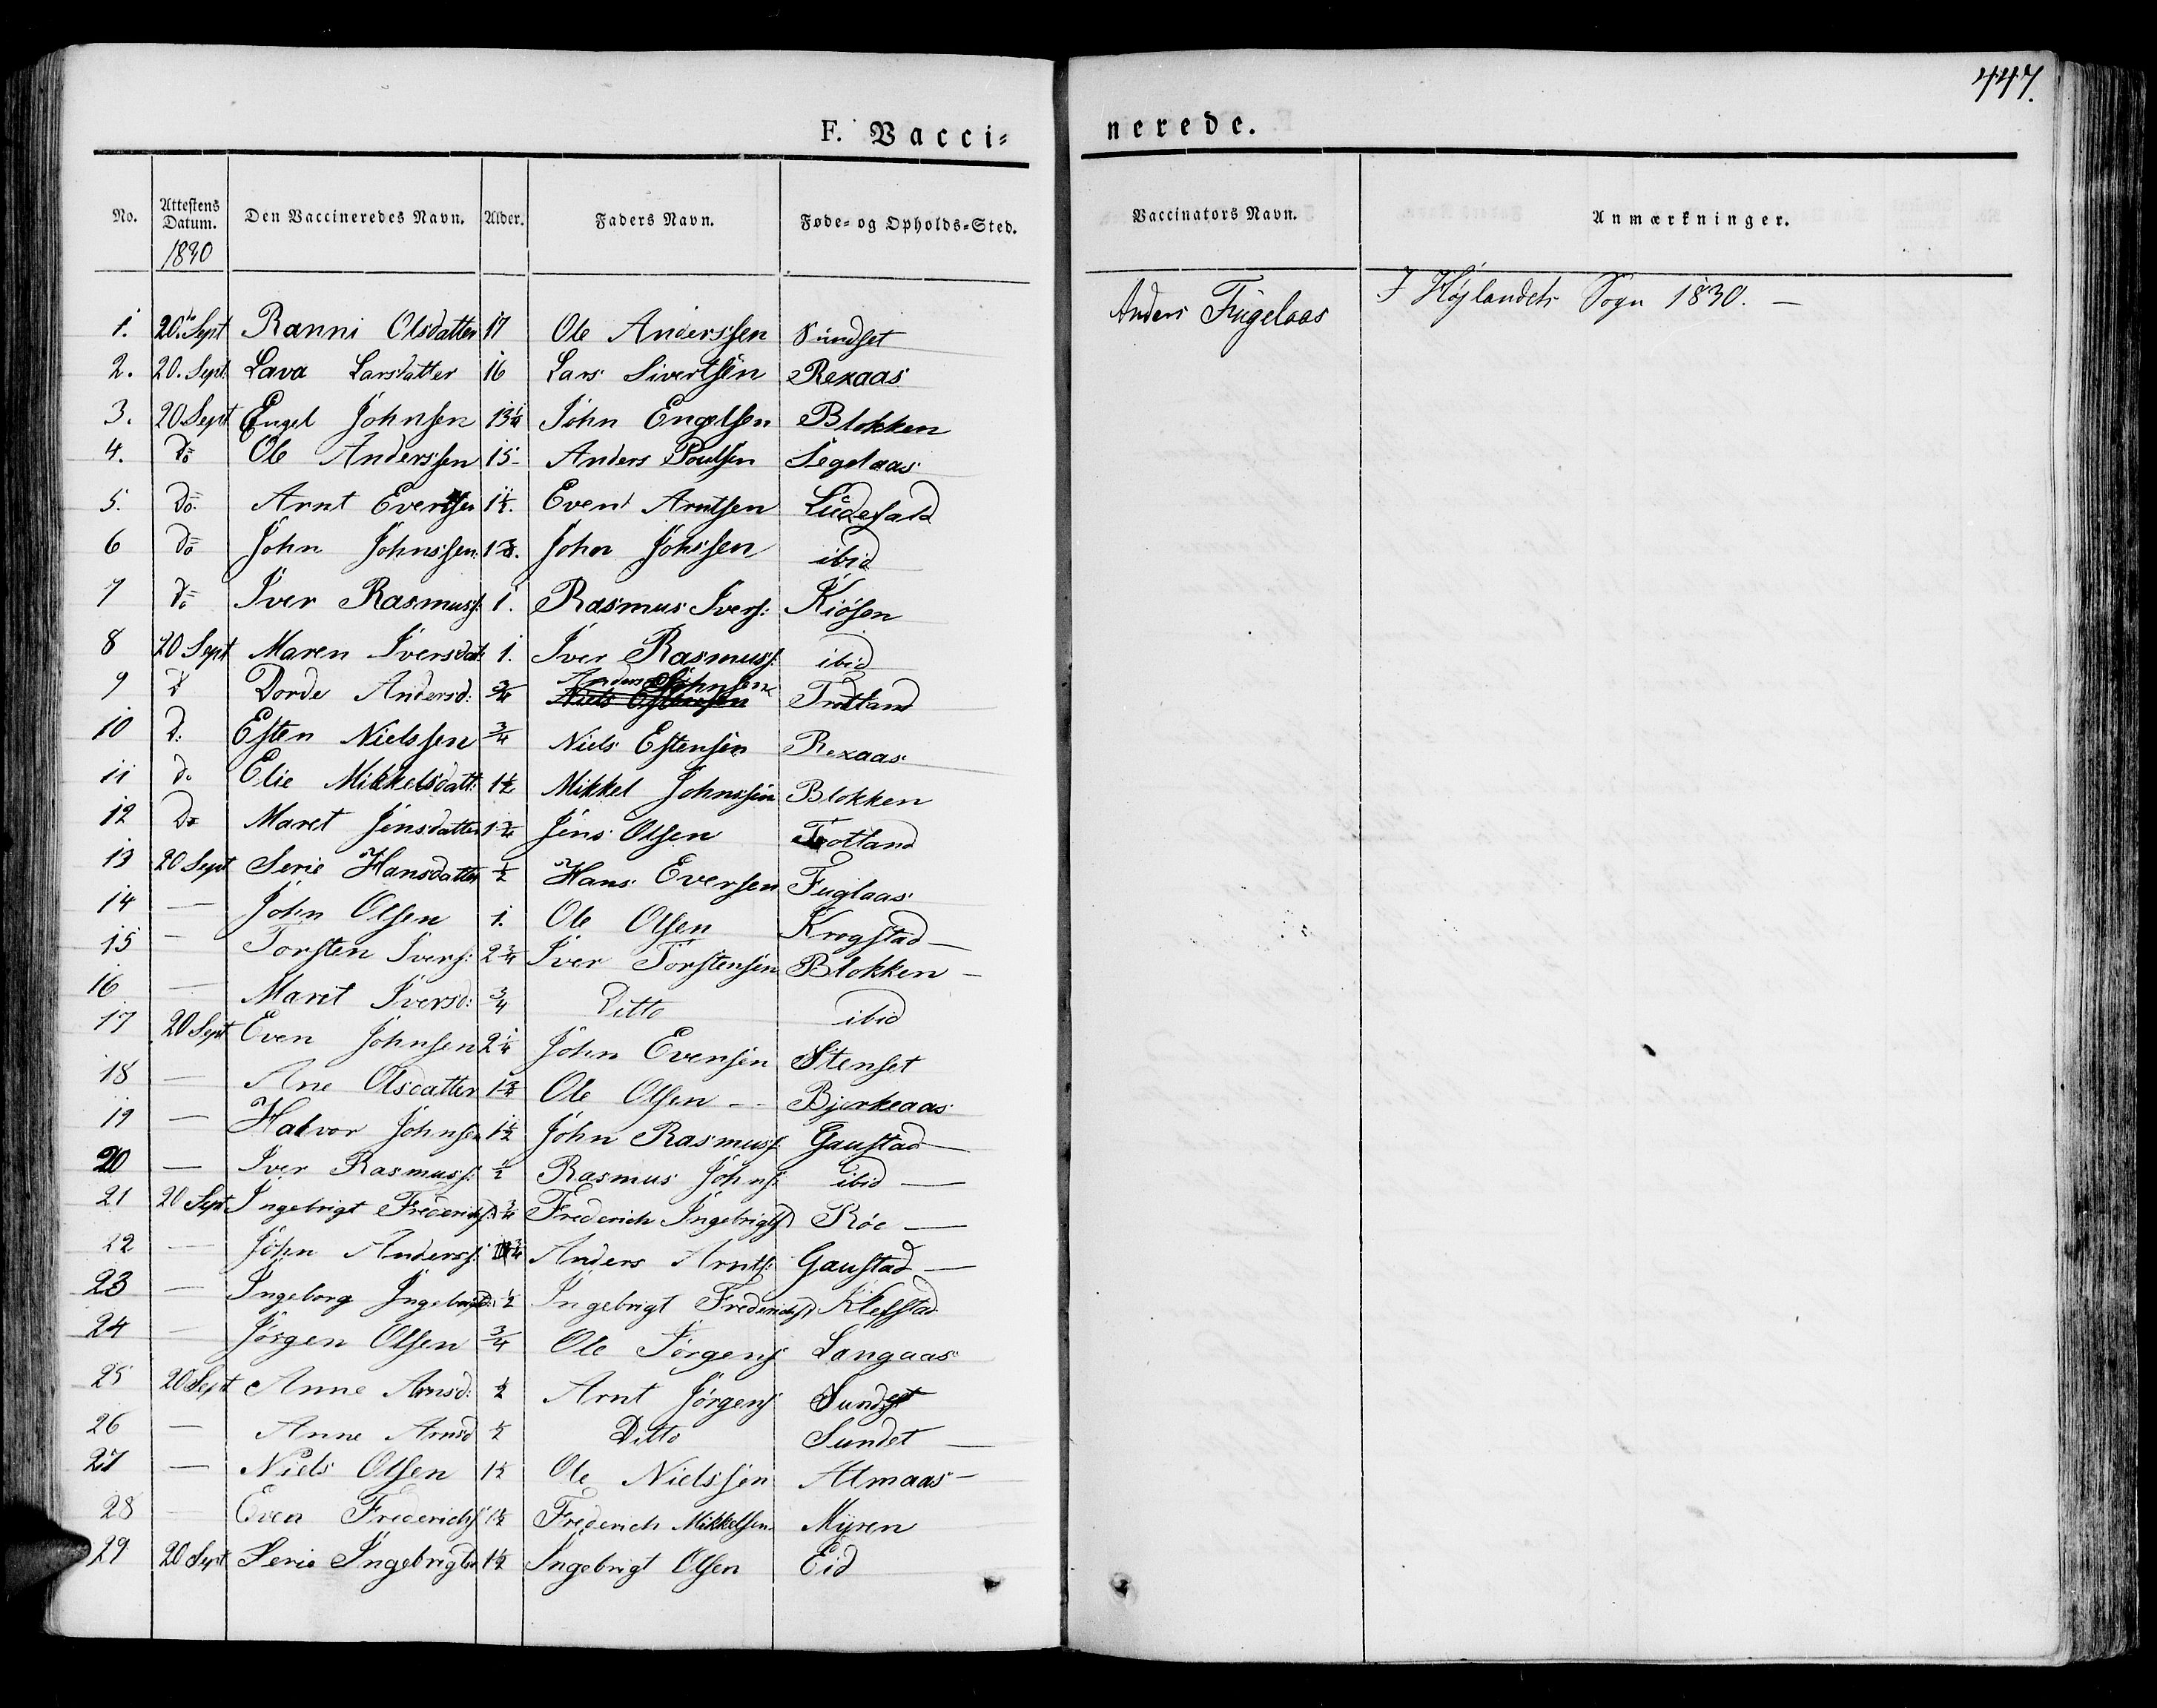 447.
F. Vacci= nerede.
No. Attestens Datum. Den Vaccineredes Navn. Alder. Faders Navn. Føde= og Opholds=Sted. Vaccinators Navn. Anmærkninger.
1830
1. 20. Sept Ranni Olsdatter 17 Ole Anderssen Sundset Anders Fugelaas I Højlandets Sogn 1830. —
2. 20. Sept. Lava Larsdatter 16 Lars Sivertsen Rexaas
3. 20 Sept Engel Johnsen 13 1/4 John Engelsen Blokken
4. do Ole Anderssen 15 - Anders Poulsen Segelaas
5. do. Arnt Eventsen 1 1/2. Even Arntsen
6 do John Johnssen. 1 3/4. John Johssen ibid
7 do Iver Rasmuss: 1. Rasmus Ivers: Kiösen
8 20 Sept Maren Iversdat: 1. Iver Rasmuss: ibid
9 d Dorde Andersd: 3/4 Anders Johnsen Trotland
10 d: Esten Nielssen 3/4 Niels Estensen Rexaas
11 do Elie Mikkelsdatt: 1 1/2 Mikkel Johnssen Blokken
12 do Maret Jensdatter 1 3/4 Jens Olsen Trotland
13 20 Sept Serie Hansdatter 1/2 Hans Eversen Fuglaas
14 — John Olsen 1. Ole Olsen Krogstad —
15 — Torsten Ivers: 2 3/4 Iver Torstensen Blokken —
16 — Maret Iversd: 3/4 Ditto ibid
17 20 Sept Even Johnsen 2 1/4 John Evensen Stenset
18 — Ane Olsdatter 1 3/4 Ole Olsen -- Bjerkeaas
19 — Halvor Johnsen 1 1/2 John Rasmuss Gaustad —
20 — Iver Rasmuss: 1/2 Rasmus Johns: ibid —
21 20 Sept Ingebrigt Frederichs: 3/4 Frederich Ingebrigts Röe —
22 — John Anderss: 3/4 Anders Arnts: Gaustad —
23 — Ingeborg 1/2 Ingebrigt Frederichs Klefstad
24 — Jörgen Olsen 3/4 Ole Jörgens Langaas
25 20 Sept Anne Arnsd: 1/2 Arnt Jörgens Sundset
26 — Anne Arnsd 1/2 Ditto Sundet —
27 — Niels Olsen 1 1/2 Ole Nielssen Almaas —
28 — Even Frederichs 1 1/2 Frederich Mikkelsen Myren
29 20 Sept Serie Ingebrigtsd 1 1/2 Ingebrigt Olsen Eid